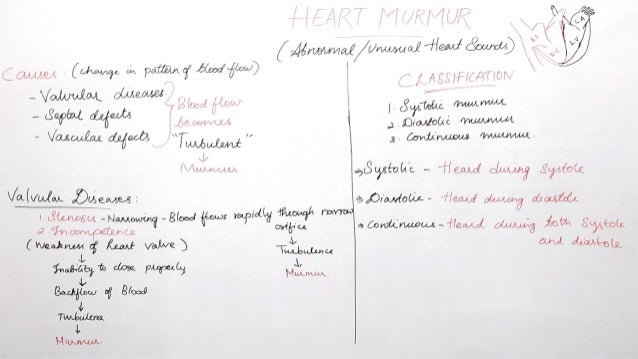 HEART MURMUR
(Abnormal/Unusual Heart Sounds)
RA
LA
RV
LV
Causes: (change in pattern of blood flow)
- Valvular diseases
- Septal defects
- Vascular defects
Blood flow
becomes
"Turbulent"
↓
Murmur
CLASSIFICATION
1. Systolic murmur
2. Diastolic murmur
3. Continuous murmur.
→ Systolic - Heard during Systole
→ Diastolic - Heard during diastole
→ Continuous - Heard during both Systole
and diastole.
Valvular Diseases:
1. Stenosis - Narrowing - Blood flows rapidly through narrow
orifice
↓
Turbulence
↓
Murmur.
2. Incompetence
(Weakness of heart valve)
↓
Inability to close properly
↓
Backflow of Blood
↓
Turbulence
↓
Murmur.